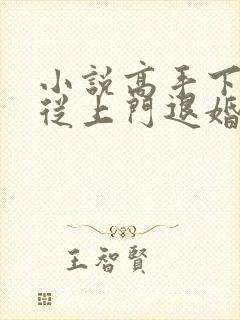 小說高手下
從上門退婚
王智賢